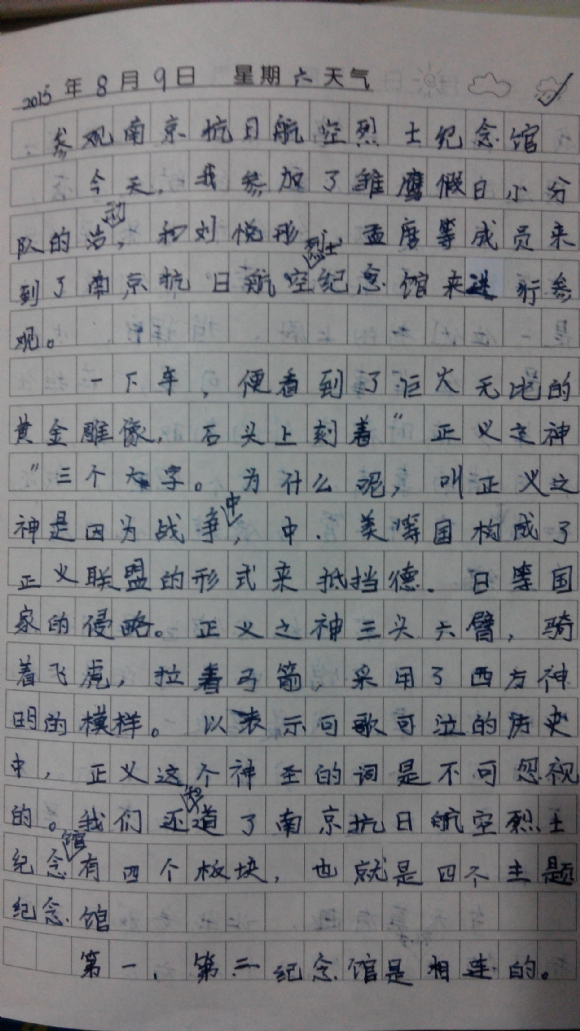 2015年8月9日 星期六天气
参观南京抗日航空烈士纪念馆
今天，我参加了雏鹰假日小分
队的活动，和刘悦形、孟磨等成员来
到了南京抗日航空烈士纪念馆来进行参
观。
一下车，便看到了巨大无比的
黄金雕像，石头上刻着“正义之神
”三个大字。为什么呢，叫正义之
神是因为战争中，中、美等国构成了
正义联盟的形式来抵挡德、日等国
家的侵略。正义之神三头六臂，骑
着飞虎，拉着弓箭，采用了西方神
明的模样。以表示可歌可泣的历史
中，正义这个神圣的词是不可忽视
的。我们还知道了南京抗日航空烈士
纪念馆有四个板块，也就是四个主题
纪念馆
第一、第二纪念馆是相连的。